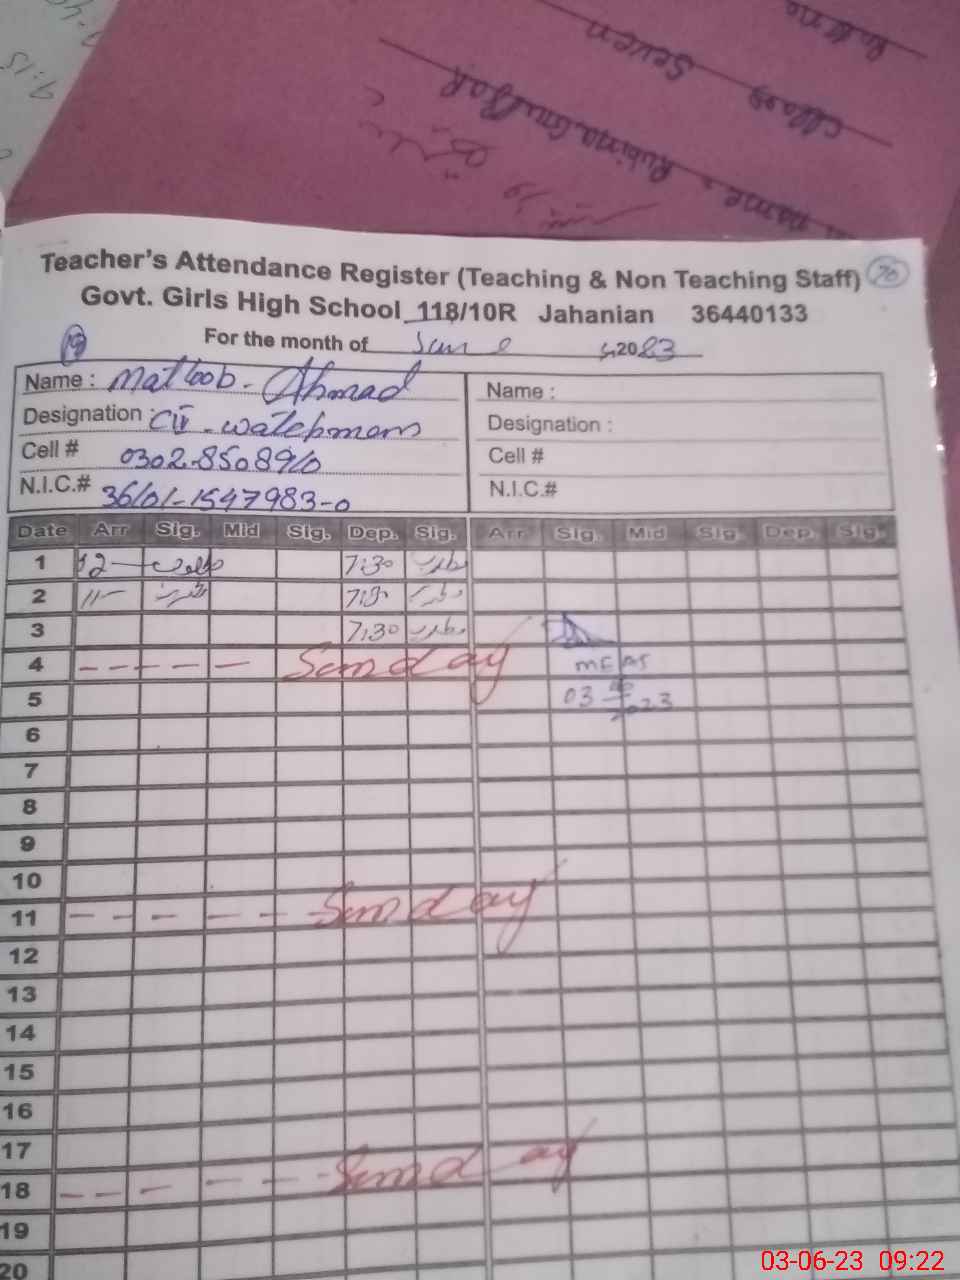 9:15
Rubina Gulfar
Class Seven
Name :
Teacher's Attendance Register (Teaching & Non Teaching Staff) 70
Govt. Girls High School 118/10R Jahanian 36440133
19 For the month of June 2023
Name : Matloob Ahmad Name :
Designation : CIV-watchman Designation :
Cell # 0302-8508910 Cell #
N.I.C.# 36101-1547983-0 N.I.C.#
Date Arr Sig. Mid Sig. Dep. Sig. Arr Sig. Mid Sig. Dep. Sig.
1 12 مطلوب 7:30 مطلوب
2 11 مطلوب 7:30 مطلوب
3 7:30 مطلوب
4 - - - - - Sunday MEA
5 03 2023
6
7
8
9
10
11 - - - - - Sunday
12
13
14
15
16
17
18 - - - - - Sunday
19
20
03-06-23 09:22